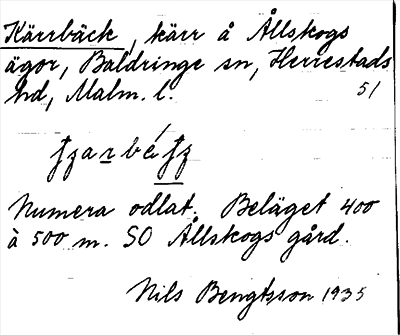 Kärrbäck, kärr å Ållskogs
ägor, Baldringe sn, Herrestads
hd, Malm. l. 51
Numera odlat. Beläget 400
à 500 m. SO Ållskogs gård.
Nils Bengtsson 1935